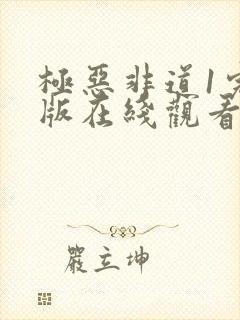 極惡非道1完
版在綫觀看
嚴立坤